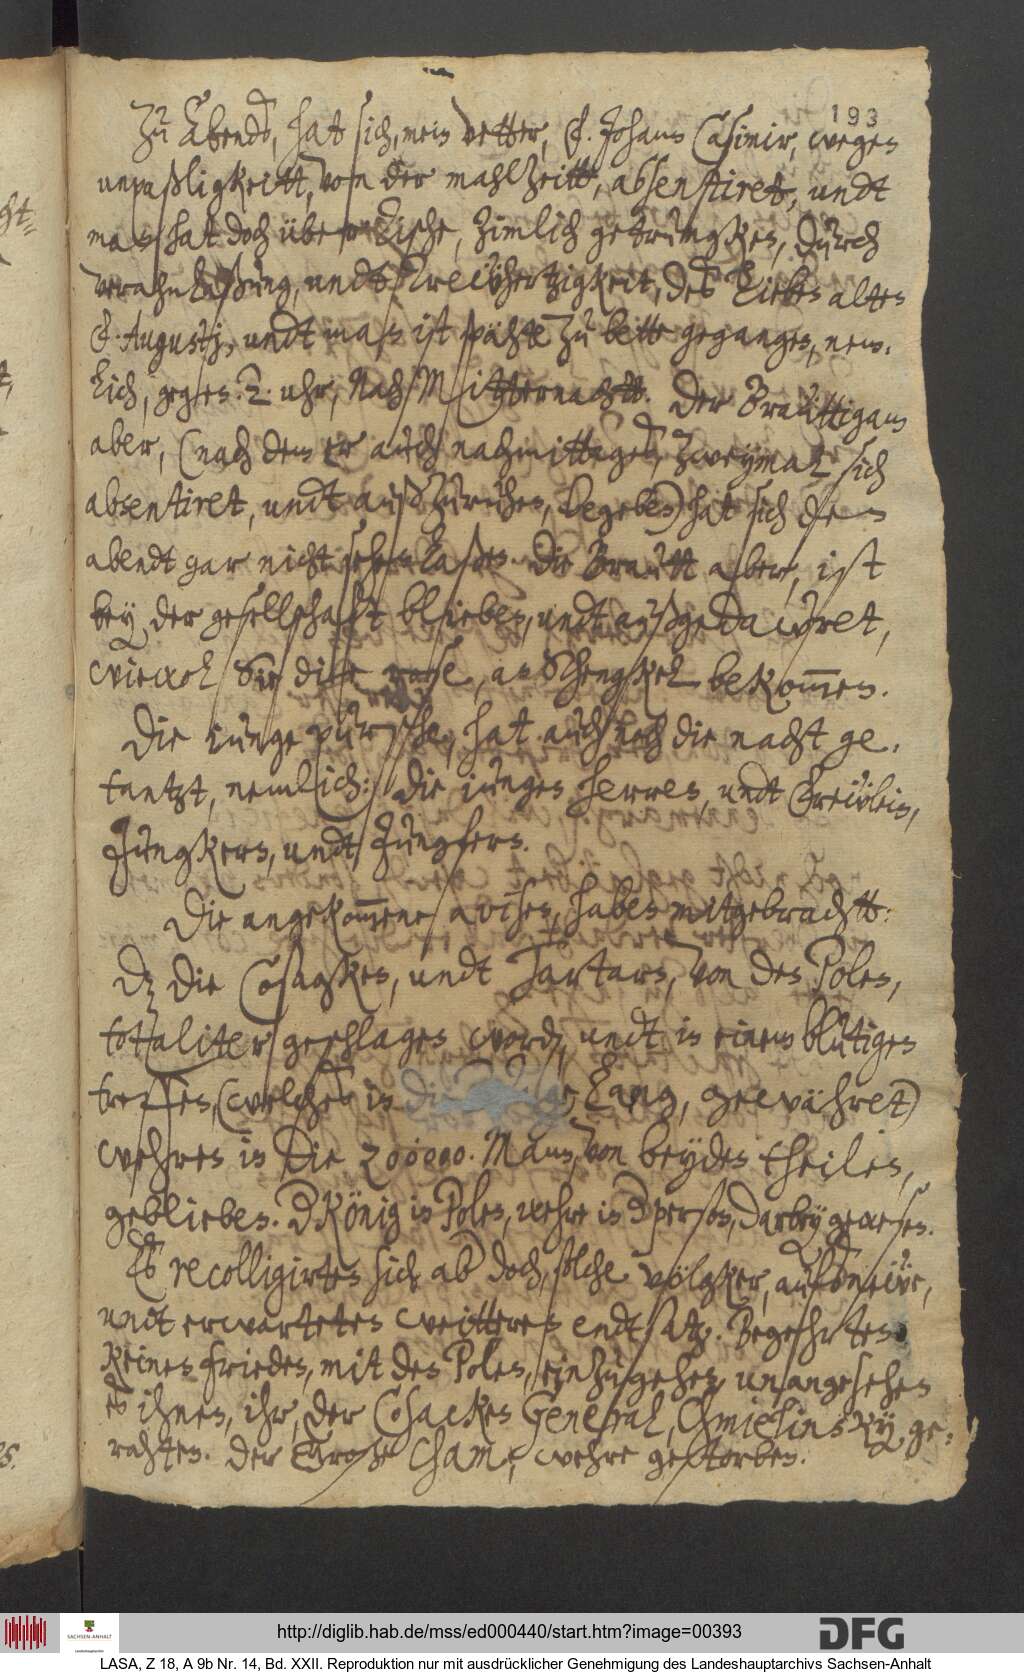 193
Zu Abends, hat sich, mein vetter, F. Johann Casimir, wegen
unpaßligkeitt, von der mahlzeitt, absentiret, undt
man hat doch über Tische, zimlich getruncken, durch
verahnlaßung, undt Trewhertzigkeit, des lieben alten
F. Augustj, undt man ist späte zu bette gegangen, nem-
lich, gegen 2 uhr, Nach Mitternachtt. Der Breüttigam
aber, (nach dem er auch nachmittages, zweymal sich
absentiret, undt außzuruhen, begeben) hat sich den
abendt gar nicht sehen laßen. Die Brautt aber, ist
bey der gesellschafft blieben, undt außgedawret,
wiewol Sie die rose, am Schengkel bekommen.
Die iunge pursche, hat auch noch die nacht ge-
tantzt, nemlich: die iungen herren, undt Frewlein,
Jungkern, undt Jungfern.
Die angekommenen avisen, haben mitgebrachtt:
dz die Cosagken, undt Tartarn, von den Polen,
tottaliter geschlagen word, undt in einem blutigen
treffen, (welches in die lang, gewähret)
wehren in die 200000. Mann, von beyden theilen,
geblieben. D König in Polen, wehre in Person, darbey gewesen.
Es recolligirten sich ab doch, solche völgker, aufs newe,
undt erwarteten weitteren endtsatz. Begehrten
keinen frieden, mit den Polen, einzugehen, unangesehen
es ihnen, ihr, der Cosacken General, Chmielinsky, ge-
rahten. Der Große Cham, wehre gestorben.
http://diglib.hab.de/mss/ed000440/start.htm?image=00393
SACHSEN-ANHALT
DFG
LASA, Z 18, A 9b Nr. 14, Bd. XXII. Reproduktion nur mit ausdrücklicher Genehmigung des Landeshauptarchivs Sachsen-Anhalt